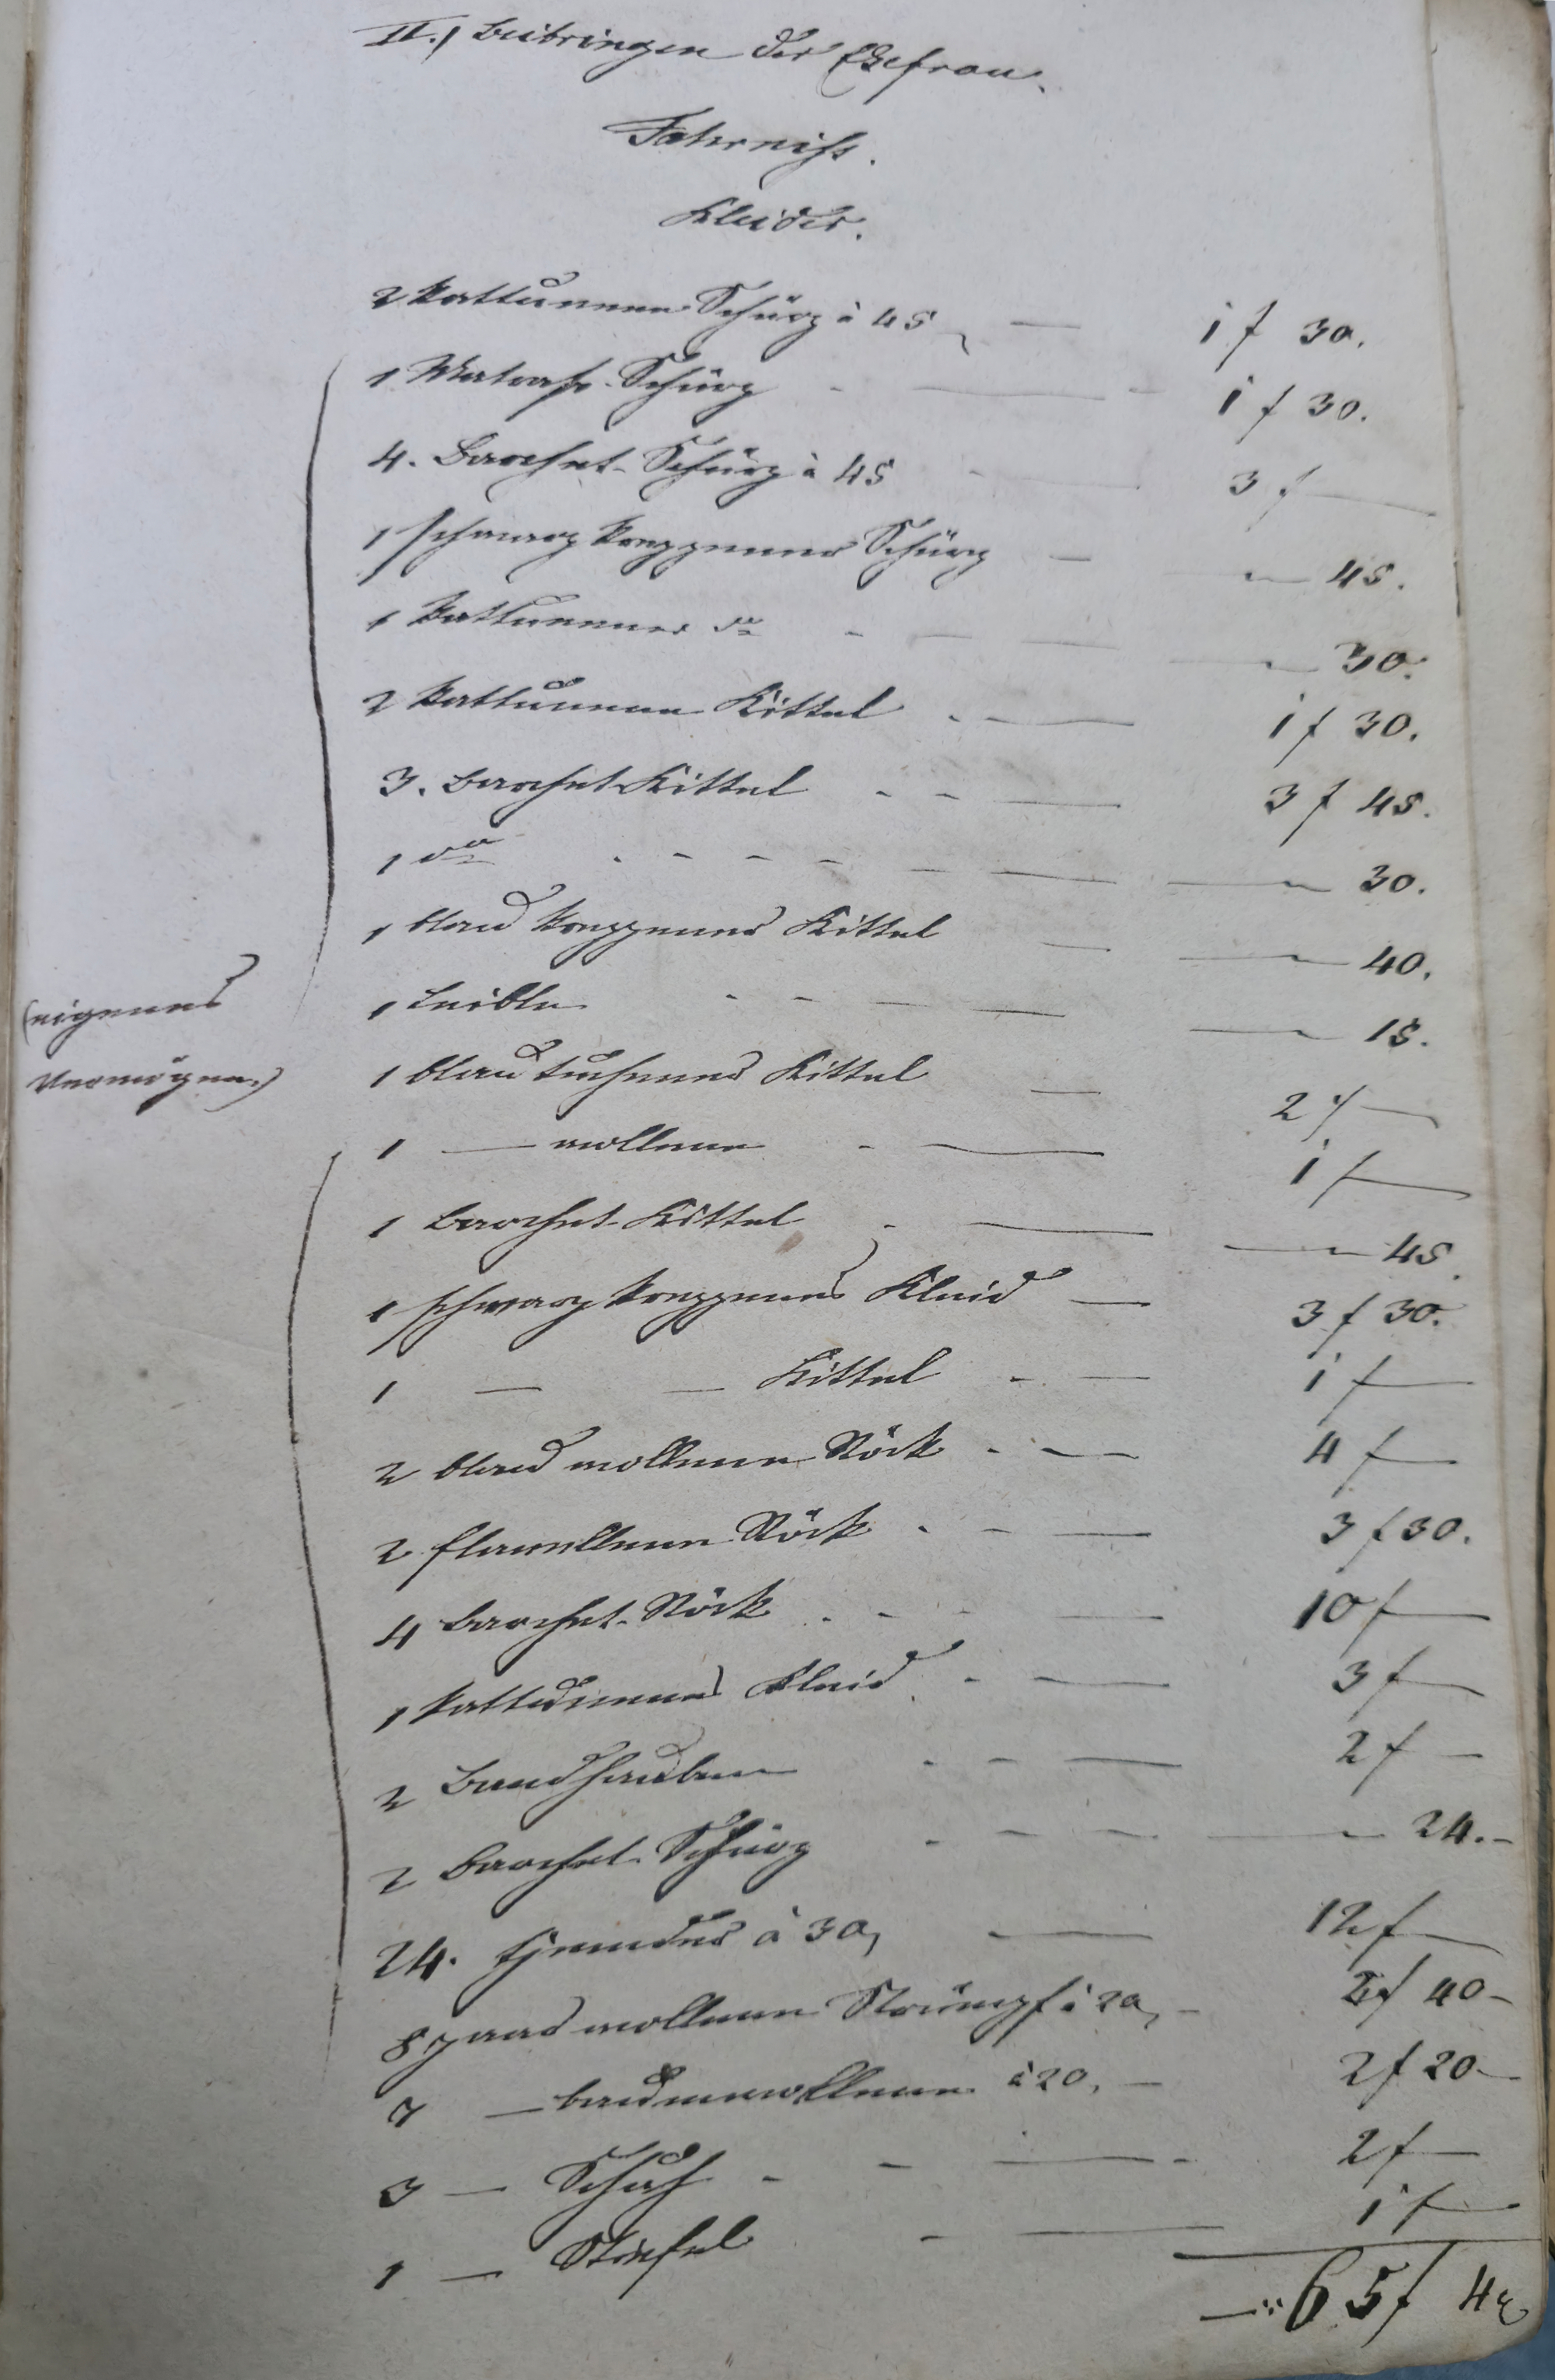 II.) Beibringen der Ehefrau.
Fahrniß.
Kleider.
2 kattunene Schürz à 45, — 1 f 30.
1 Schürz - — 1 f 30.
4. Barchet-Schürz à 45 - — 3 f —
1 schwarz zeuggener Schürz — — " — 45.
1 kattunener do - — — " — 30.
2 kattunene Kittel - — 1 f 30.
3. Barchet-Kittel - - — 3 f 45.
1 do . - - - — — " — 30.
1 blau zeuggener Kittel — — " — 40.
1 Leible - - — — " — 15.
(eigenes
Vermögen.)
1 blau tuchener Kittel — 2 f —
1 — wollene - — 1 f —
1 Barchet-Kittel - — — " — 45.
1 schwarz zeuggenes Kleid — 3 f 30.
1 — — Kittel - — 1 f —
2 blau wollene Röck - — 4 f —
2 flanellene Röck - - — 3 f 30.
4 Barchet-Röck . - - — 10 f —
1 kattunenes Kleid - — 3 f —
2 Bandhauben - - — 2 f —
2 Barchet-Schürz - - - — " 24.-
24. Hemder à 30, — 12 f —
8 paar wollene Strümpf à 20, - 2 f 40-
7 — baumwollene à 20, — 2 f 20-
3 — Schuh - - — 2 f —
1 — Stiefel - — 1 f —
—:: 65 f 4